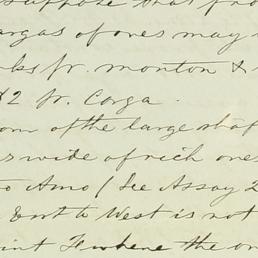 suppose that pro
argas of ores may
ks fr. monton &
$2 fr. Carga.
om of the large shaf
s wide of rich ores
to Amo (See Assay 2
East to West is not
int F where the or